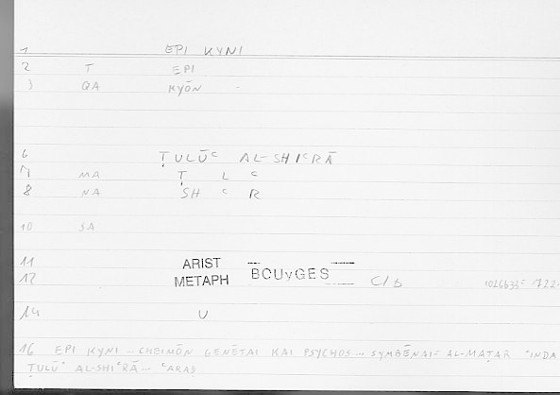 1 EPI KYNI
2 T EPI
3 QA KYŌN -
6 ṬULŪᶜ AL-SHIᶜRĀ
7 MA Ṭ L ᶜ
8 NA SH ᶜ R
10 SA
11 ARIST
12 METAPH BOUYGES C/B
14 U
16 EPI KYNI — CHEIMŌN GENĒTAI KAI PSYCHOS — AL-MAṬAR ᶜINDA
ṬULŪᶜ AL-SHIᶜRĀ —